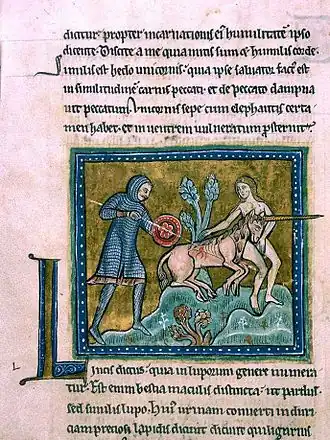 dicitur propter incarnationis ei humilitatē ipso
dicente. Discite a me quia mitis sum & humilis corde.
Similis est hedo unicornis. quia ipse salvator factꝰ est
in similitudinē carnis peccati. et de peccato dampna
uit peccatum. Unicornis sepe cum elephantis certa
men habet. et in ventrem vulneratum psternit.
Lincis dictꝰ. quia in luporum genere numera
tur. Est enim bestia maculis distincta. ut pardus.
sed similis lupo. Huiꝰ urinam converti in duri
ciam preciosi lapidis dicunt